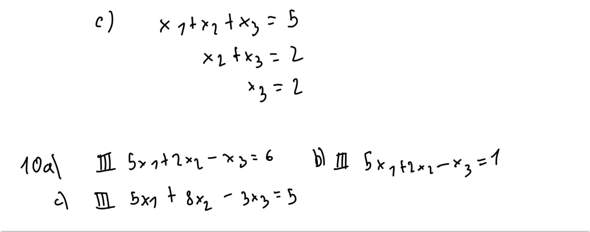 c) x₁+x₂+x₃ = 5
x₂+x₃ = 2
x₃ = 2
10a) III 5x₁+2x₂-x₃=6 b) III 5x₁+2x₂-x₃=1
c) III 5x₁ + 8x₂ - 3x₃ = 5